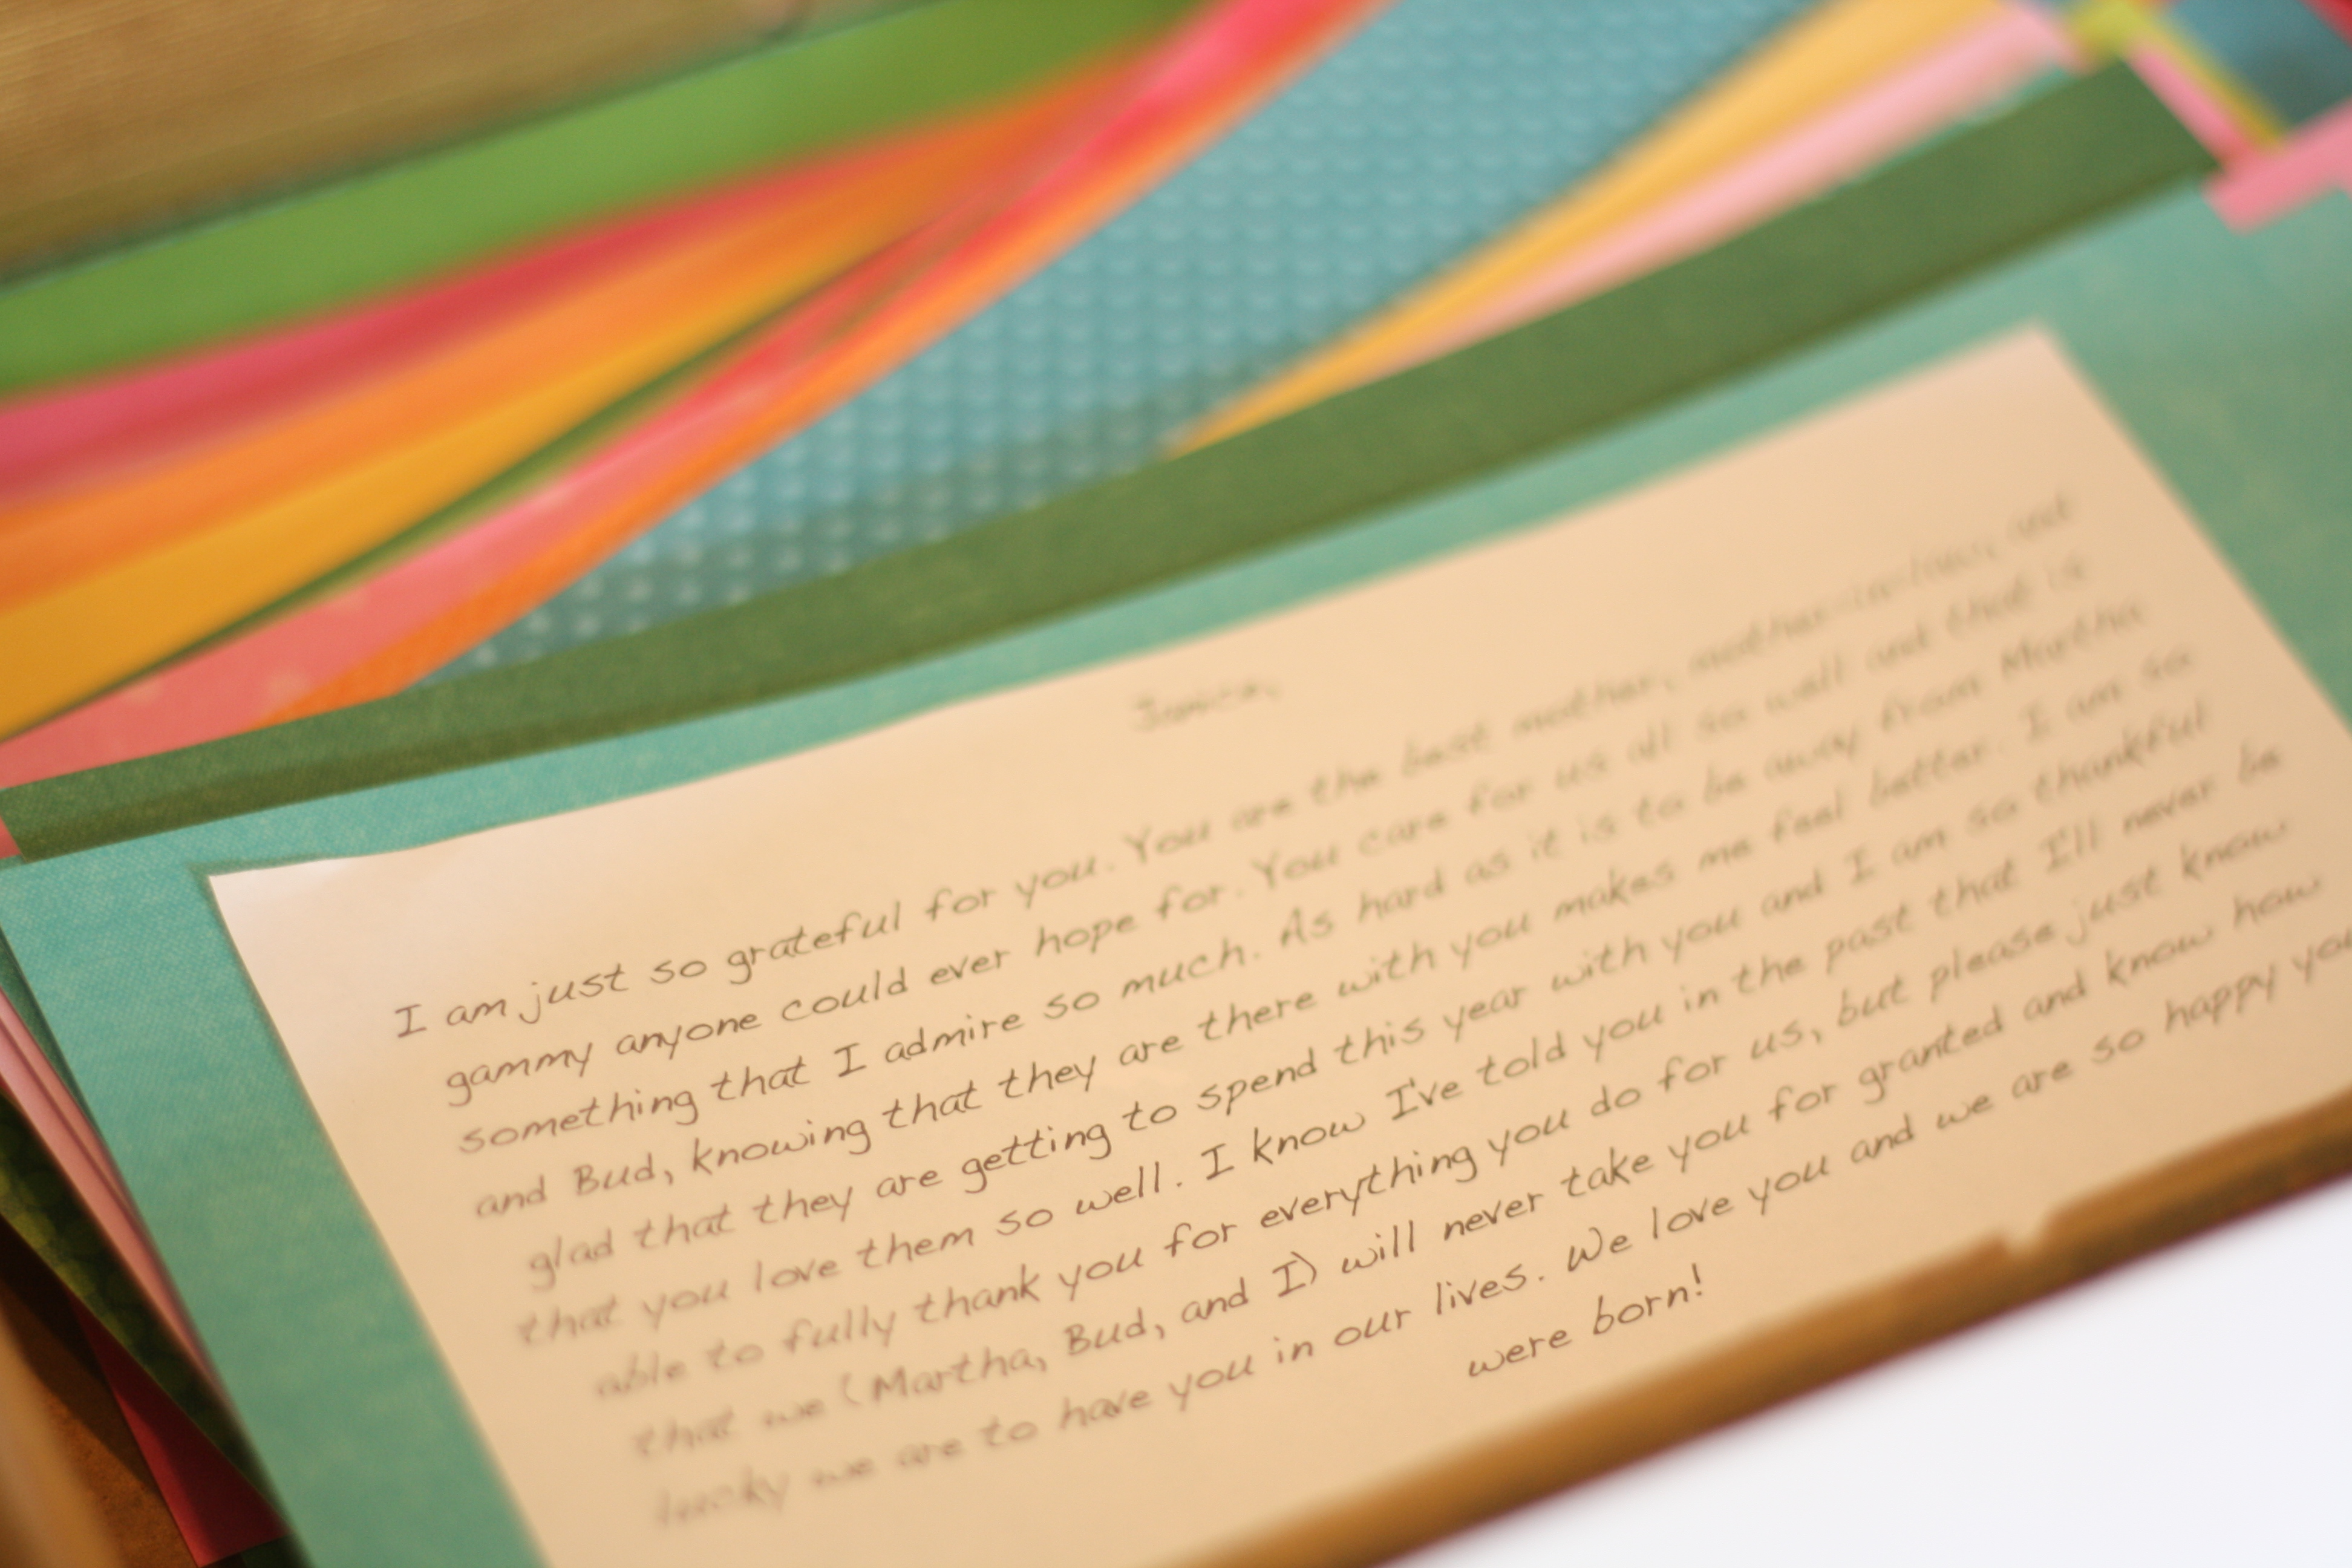 Janice,
I am just so grateful for you. You are the best mother, mother-in-law, and
gammy anyone could ever hope for. You care for us all so well and that is
something that I admire so much. As hard as it is to be away from Martha
and Bud, knowing that they are there with you makes me feel better. I am so
glad that they are getting to spend this year with you and I am so thankful
that you love them so well. I know I've told you in the past that I'll never be
able to fully thank you for everything you do for us, but please just know
that we (Martha, Bud, and I) will never take you for granted and know how
lucky we are to have you in our lives. We love you and we are so happy you
were born!